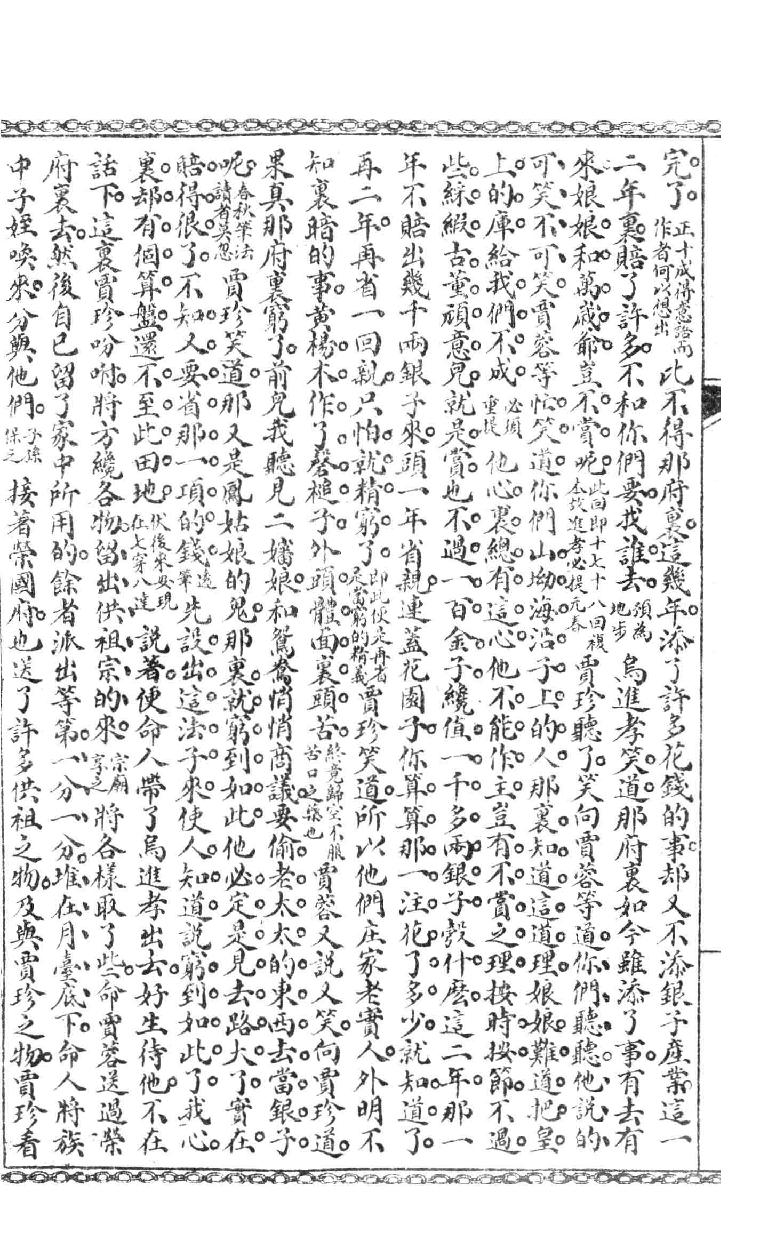 完了正十成得意語而作者何以想出此不得那府裏這幾年添了許多花錢的事却又不添銀子產業這一
二年裏賠了許多不和你們要我誰去預為地步烏進孝笑道那府裏如今雖添了事有去有
來娘娘和萬歲爺豈不賞呢此回即十七十八回複本故進孝必提元春賈珍聽了笑向賈蓉等道你們聽聽他說的
可笑不可笑賈蓉等忙笑道你們山坳海沿子上的人那裏知道這道理娘娘難道把皇
上的庫給我們不成必須重提他心裏總有這心他不能作主豈有不賞之理按時按節不過
些綵緞古董頑意兒就是賞也不過一百金子纔值一千多兩銀子彀什麽這二年那一
年不賠出幾千兩銀子來頭一年省親連蓋花園子你算算那一注花了多少就知道了
再二年再省一回親只怕就精窮了即此便定再省是富窮的精義賈珍笑道所以他們庄家老實人外明不
知裏暗的事黃楊木作了磬槌子外頭體面裏頭苦終竟歸空不服苦口之藥也賈蓉又說又笑向賈珍道
果真那府裏窮了前兒我聽見二嬸娘和鴛鴦悄悄商議要偷老太太的東西去當銀子
呢春秋筆法讀者莫忽賈珍笑道那又是鳳姑娘的鬼那裏就窮到如此他必定是見去路大了實在
賠得很了不知又要省那一項的錢遠筆先設出這法子來使人知道說窮到如此了我心
裏却有個算盤還不至此田地伏後來要現在七穿八達說著便命人帶了烏進孝出去好生待他不在
話下這裏賈珍吩咐將方纔各物留出供祖宗的來宗廟享之將各樣取了些命賈蓉送過榮
府裏去然後自己留了家中所用的餘者派出等第一分一分堆在月臺底下命人將族
中子姪喚來分與他們子孫保之接著榮國府也送了許多供祖之物及與賈珍之物賈珍看